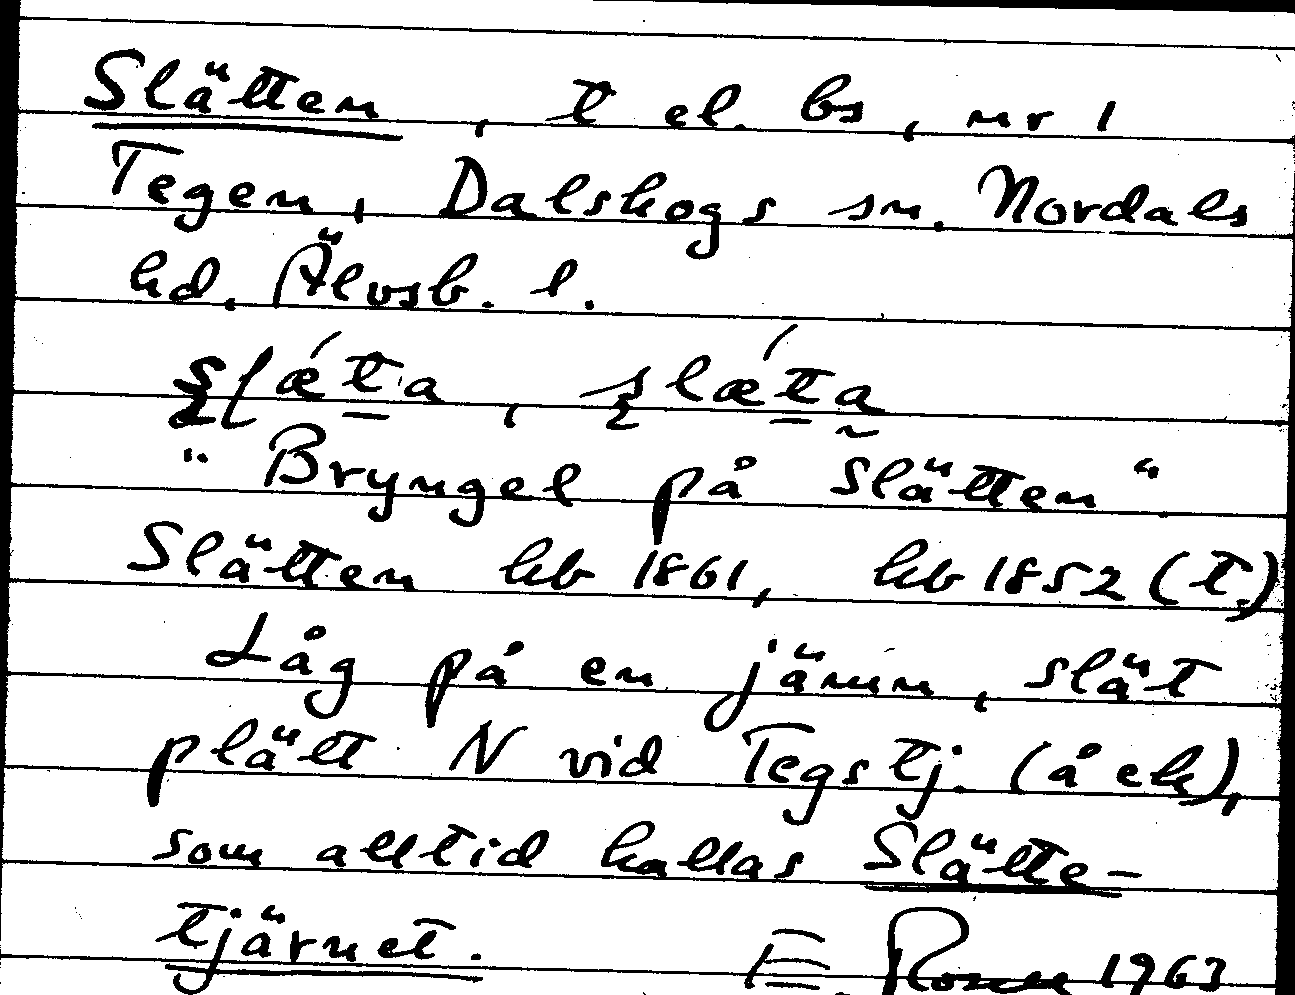 Slätten, t el. bs, nr 1
Tegen, Dalskogs sn. Nordals
hd. Älvsb. l.
"Bryngel på Slätten".
Slätten hb 1861, hb 1852 (t.)
Låg på en jämn, slät
plätt N vid Tegstj. (å ek),
som alltid kallas Slätte-
tjärnet. E. 1963